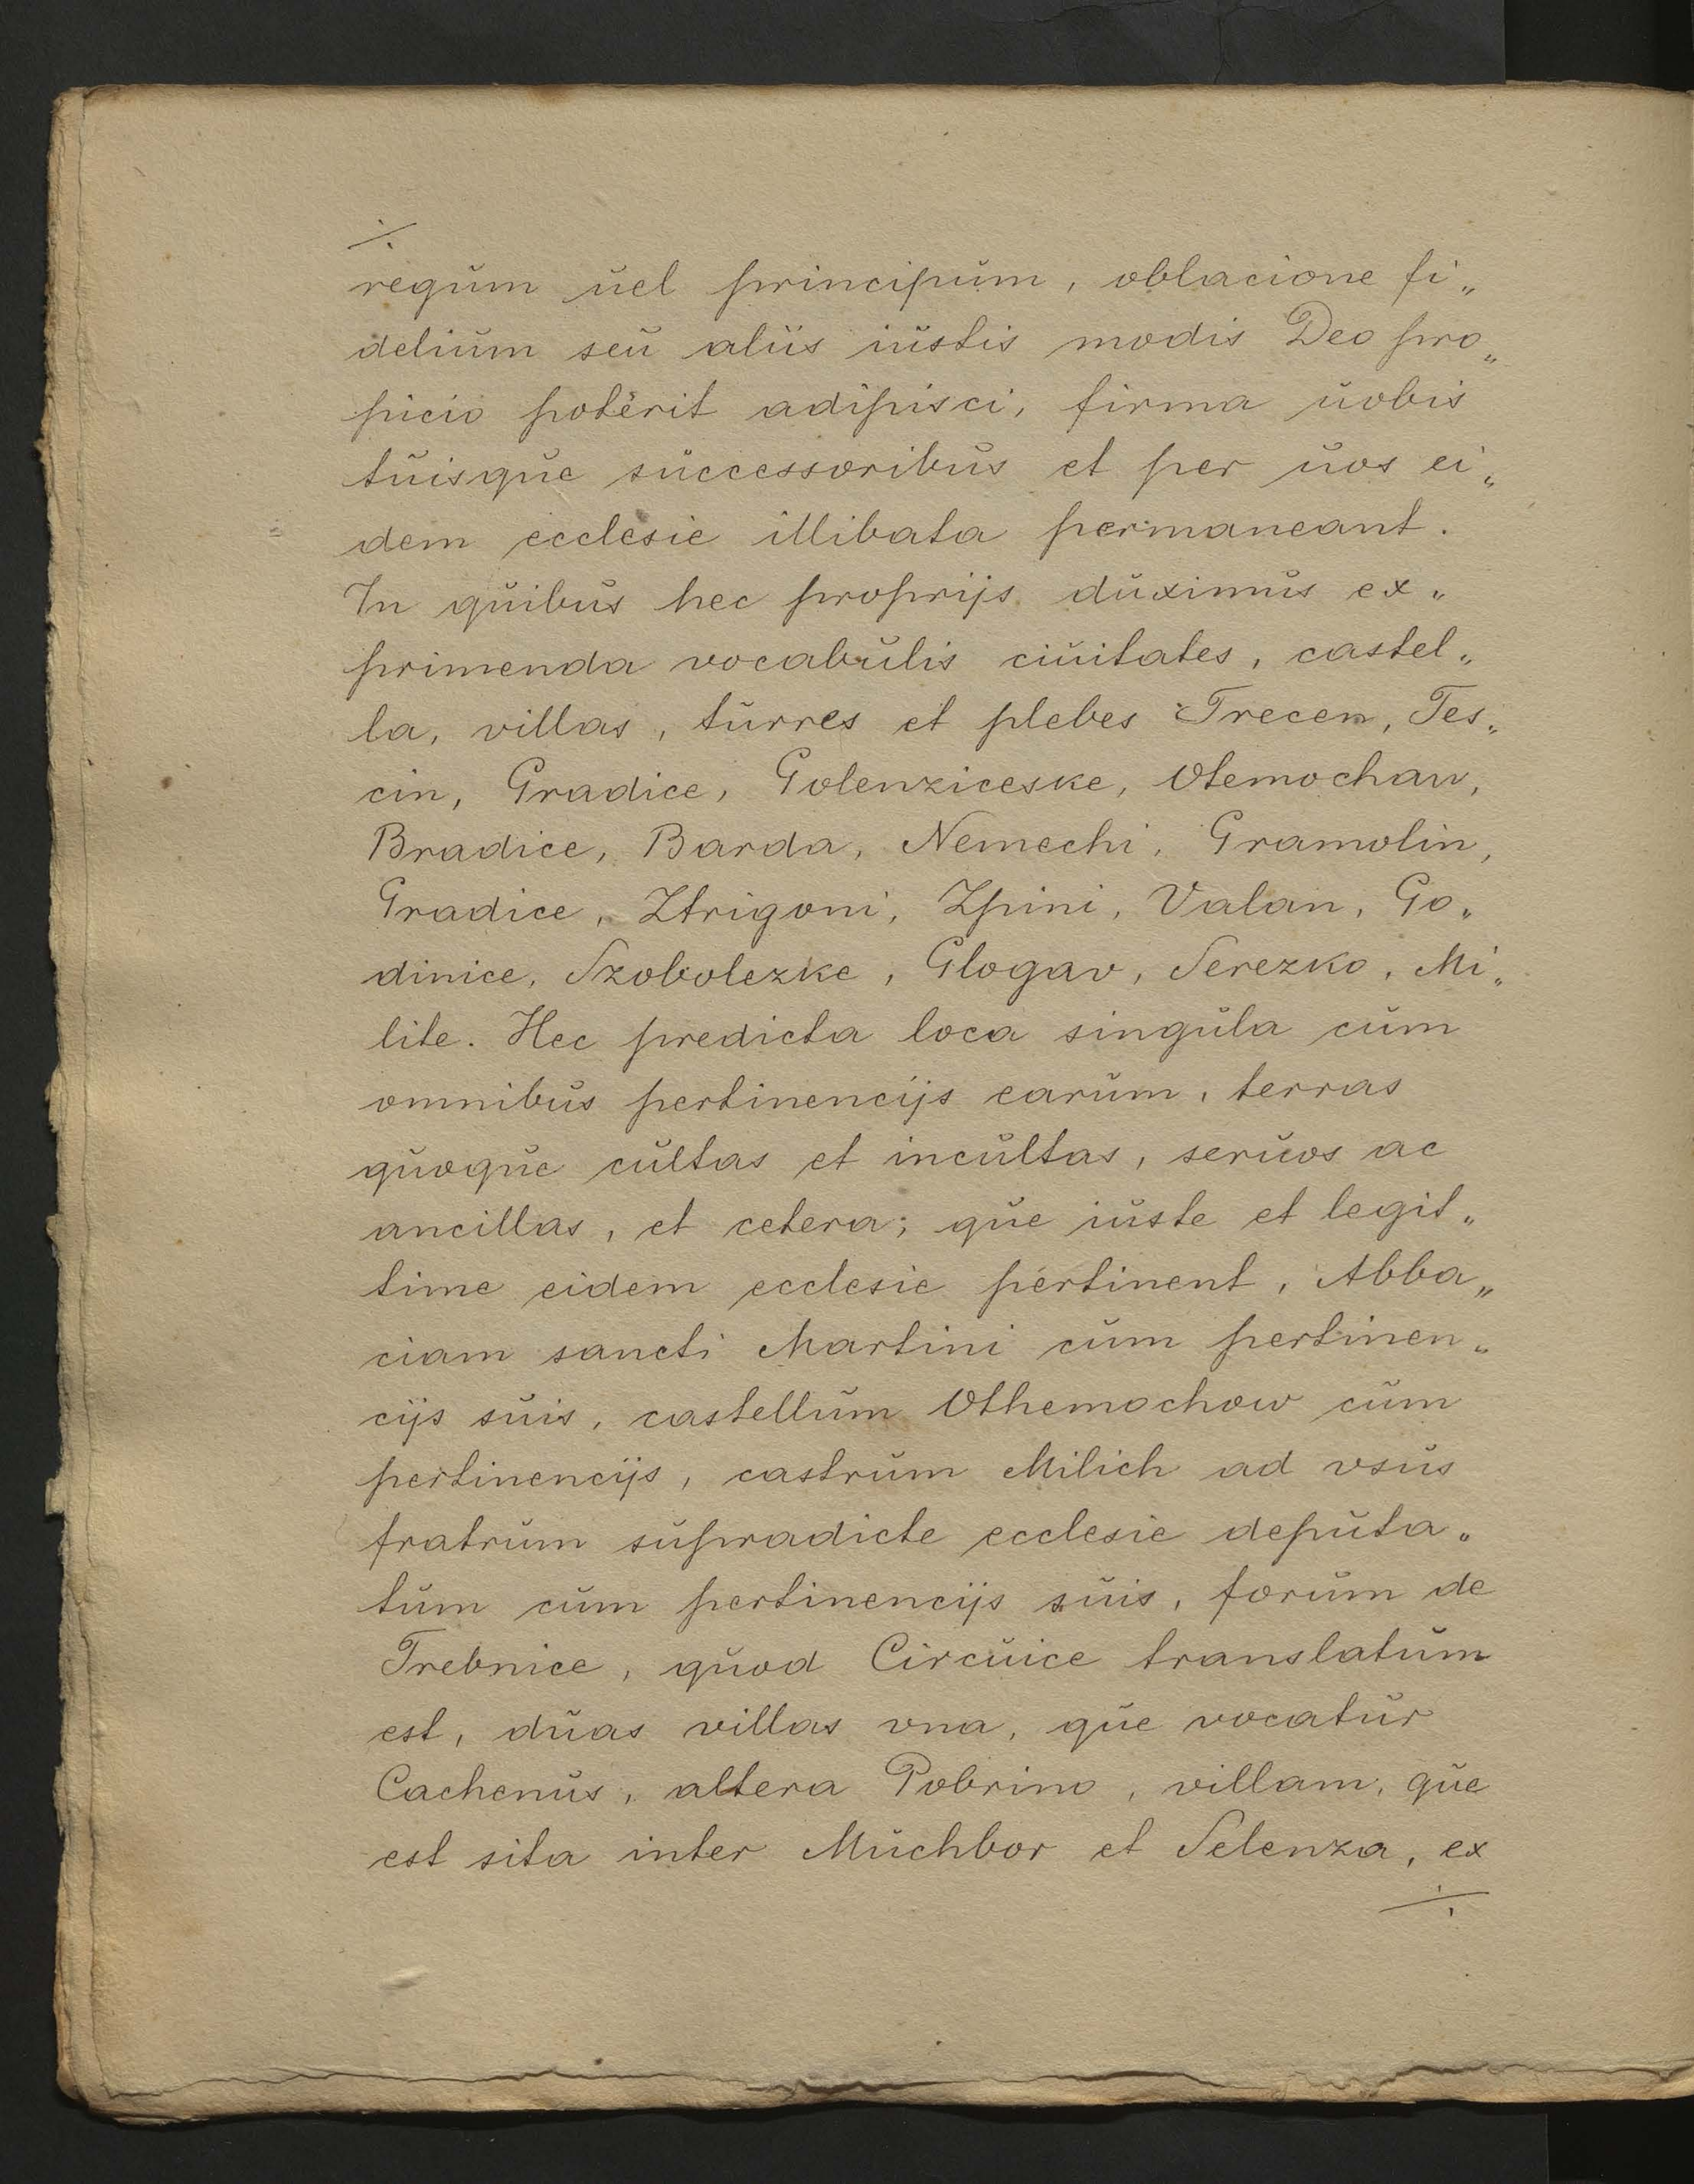 regum uel principum, oblacione fi„
delium seu aliis iustis modis Deo pro„
picio poterit adipisci, firma uobis
tuisque successoribus et per uos ei„
dem ecclesie illibata permaneant.
In quibus hec proprijs duximus ex„
primenda vocabulis ciuitates, castel„
la, villas, turres et plebes Trecen, Tes„
cin, Gradice, Golenziceske, Otemochaw,
Bradice, Barda, Nemechi, Gramolin,
Gradice, Ztrigoni, Zpini, Valan, Go„
dinice, Szobolezke, Glogav, Serezko, Mi„
lite. Hec predicta loca singula cum
omnibus pertinencijs earum, terras
quoque cultas et incultas, seruos ac
ancillas, et cetera; que iuste et legit„
time eidem ecclesie pertinent, Abba„
ciam sancti Martini cum pertinen„
cijs suis, castellum Othemochow cum
pertinencijs, castrum Milich ad vsus
fratrum supradicte ecclesie deputa„
tum cum pertinencijs suis, forum de
Trebnice, quod Circuice translatum
est, duas villas vna, que vocatur
Cachenus, altera Pobrino, villam, que
est sita inter Muchbor et Selenza, ex